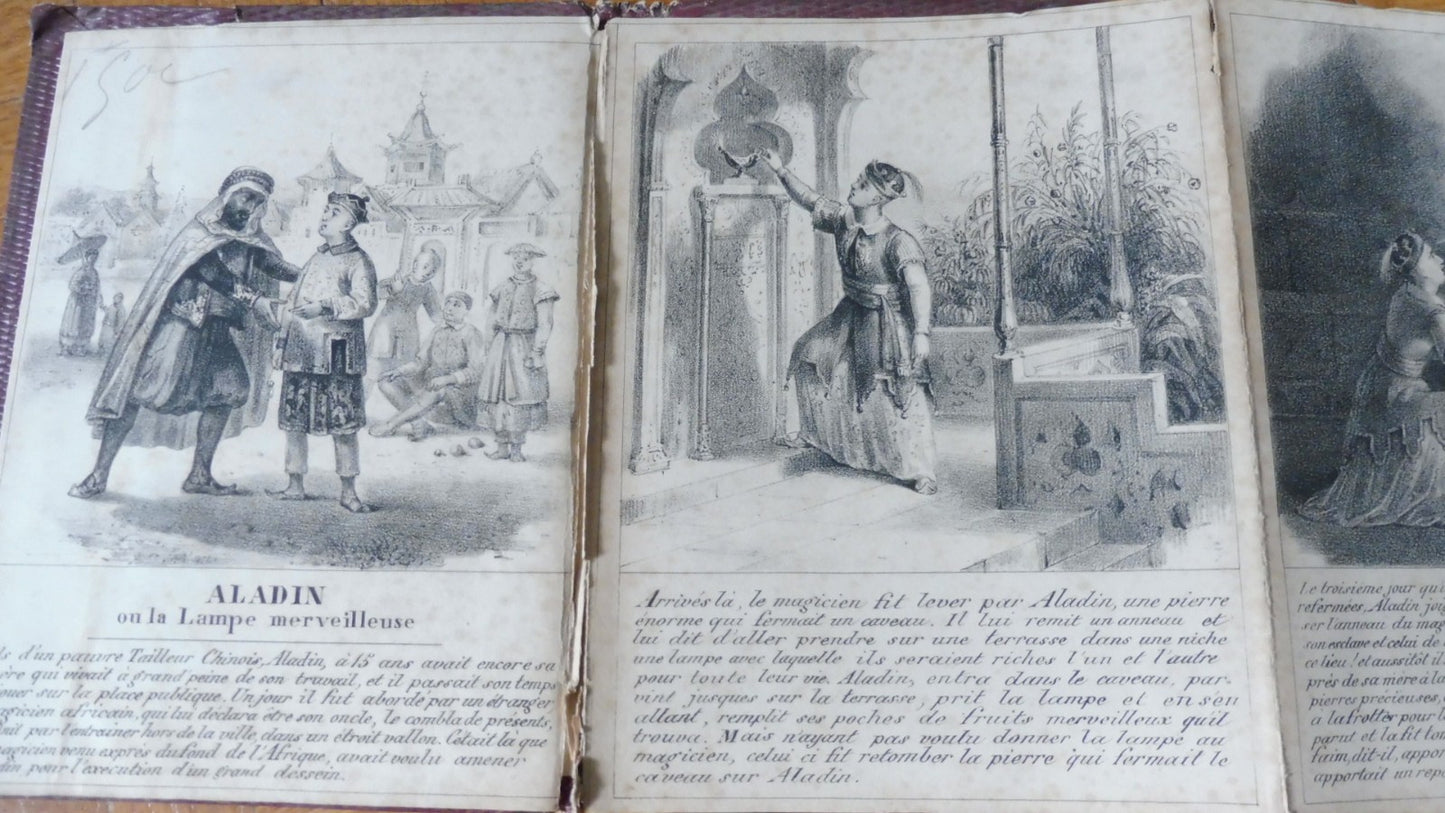 ALADIN
ou la Lampe merveilleuse
d'un pauvre Tailleur Chinois, Aladin, à 15 ans avait encore sa
qui vivait a grand peine de son travail, et il passait son temps
sur la place publique. Un jour il fut abordé par un étranger
africain, qui lui déclara être son oncle, le combla de présents,
par l'entrainer hors de la ville, dans un étroit vallon. C'etait là que
magicien venu exprès du fond de l'Afrique, avait voulu amener
pour l'execution d'un grand dessein.
Arrivés là, le magicien fit lever par Aladin, une pierre
énorme qui fermait un caveau. Il lui remit un anneau et
lui dit d'aller prendre sur une terrasse dans une niche
une lampe avec laquelle ils seraient riches l'un et l'autre
pour toute leur vie. Aladin, entra dans le caveau, par-
vint jusques sur la terrasse, prit la lampe et en s'en
allant, remplit ses poches de fruits merveilleux qu'il
trouva. Mais n'ayant pas voulu donner la lampe au
magicien, celui ci fit retomber la pierre qui fermait le
caveau sur Aladin.
Le troisième jour
refermées, Aladin
ser l'anneau du
son esclave et celui de
ce lieu! et aussitôt il
près de sa mere à la
pierres précieuses,
a la frotter pour
parut et la fit
faim, dit-il,
apportait un